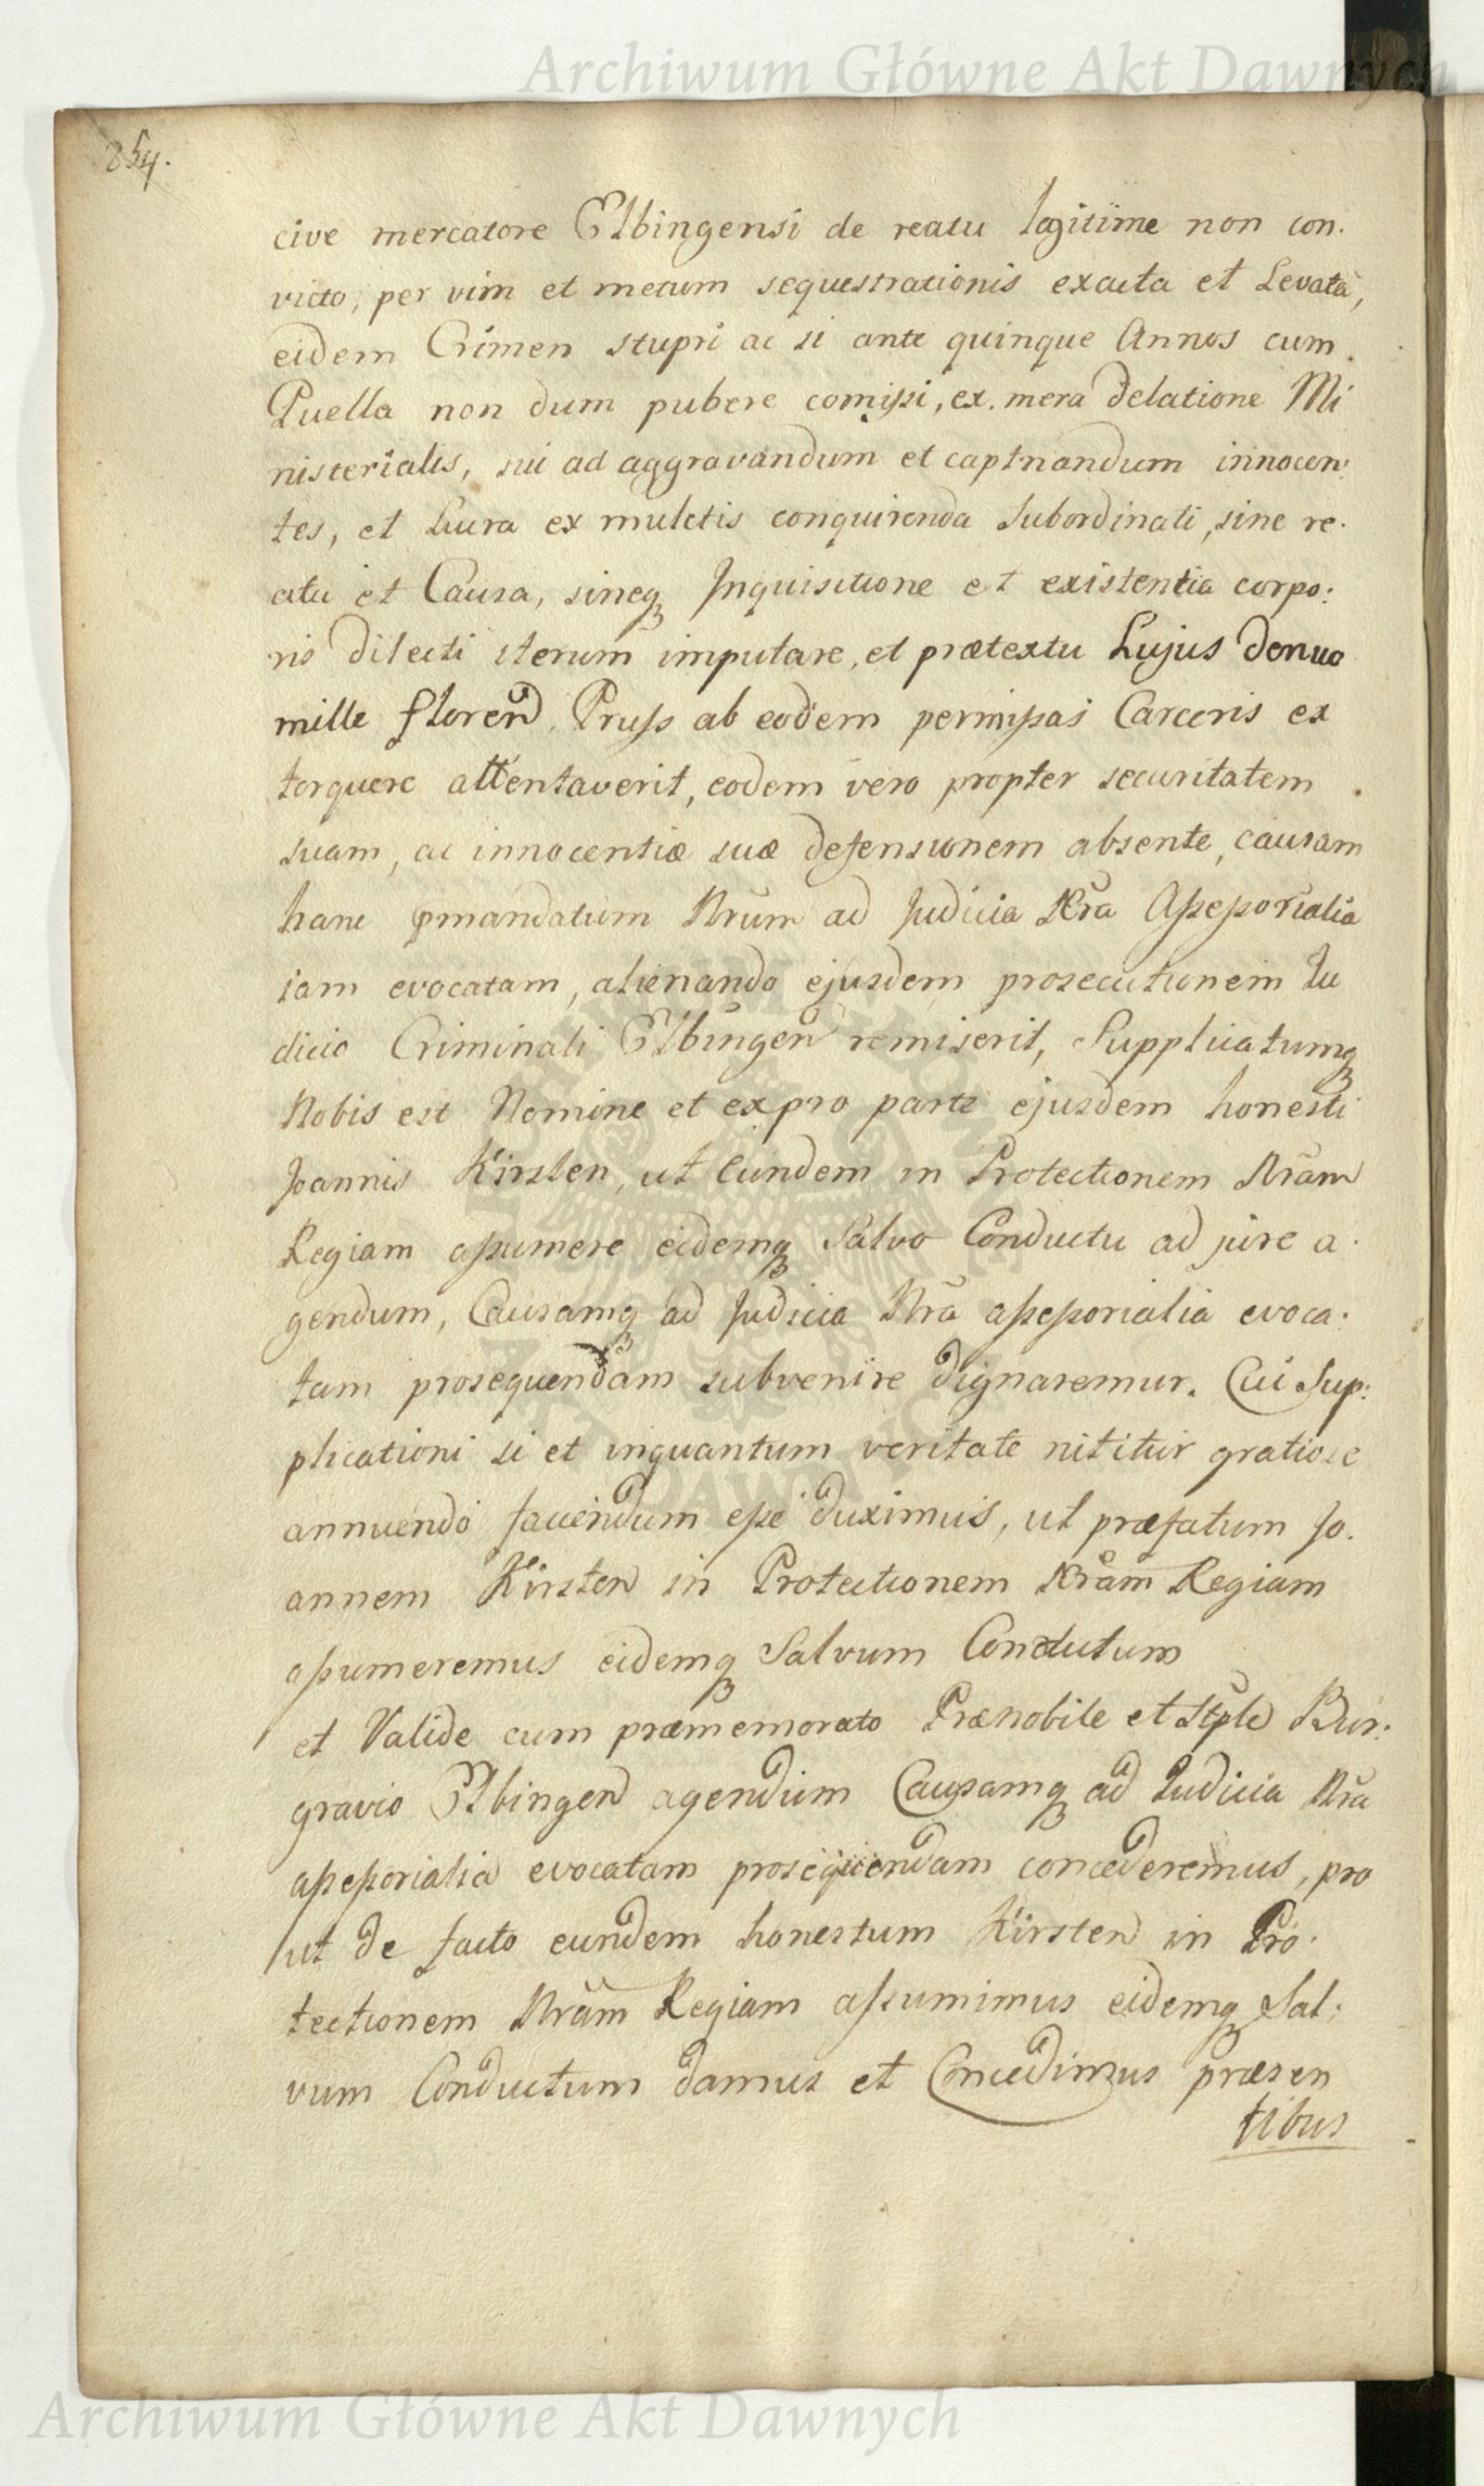 Archiwum Główne Akt Dawnych
254.
cive mercatore Elbingensi de reatu legitime non con.
victo, per vim et metum sequestrationis exacta et Levata,
eidem Crimen stupri ac si ante quinque Annos cum
Puella non dum pubere comissi, ex mera delatione Mi
nisterialis, sui ad aggravandum et captnandum innocen:
tes, et Lucra ex mulctis conquirenda subordinati, sine re.
atu et Causa, sineq Inquisitione et existentia corpo:
ris dilecti iterum imputare, et prætextu hujus denuo
mille floren Pruss ab eodem permissas Carceris ex
torquere attentaverit, eodem vero propter securitatem
suam, ac innocentiæ suæ defensionem absente, causam
hanc pmandatum Nrum ad Judicia Nra Assessorialia
iam evocatam, alienando ejusdem prosecutionem Iu
dicio Criminali Elbingen remiserit, Supplicatumq
Nobis est Nomine et ex pro parte ejusdem honesti
Joannis Kirsten, ut Eundem in Protectionem Nram
Regiam assumere eidemq Salvo Conductu ad jure a.
gendum, Causamq ad Judicia Nra assessorialia evoca.
tam prosequendam subvenire dignaremur. Cui Sup:
plicationi si et inquantum veritate nititur gratiose
annuendo faciendum esse duximus, ut præfatum Jo.
annem Kirsten in Protectionem Nram Regiam
assumeremus eidemq Salvum Conductum
et Valide cum præmemorato Prænobile et Bur:
gravio Elbingen agendum Causamq ad Iudicia Nra
assessorialia evocatam prosequendam concederemus, pro
ut de facto eundem honestum Kirsten in Pro.
tectionem Nram Regiam assumimus eidemq Sal:
vum Conductum damus et Concedimus præsen
tibus
Archiwum Główne Akt Dawnych